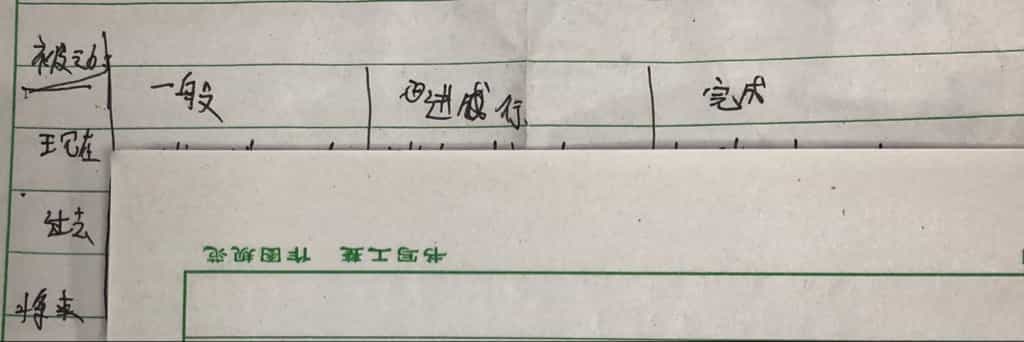 被动
一般 进行 完成
现在
过去
书写工整 作图规范
将来